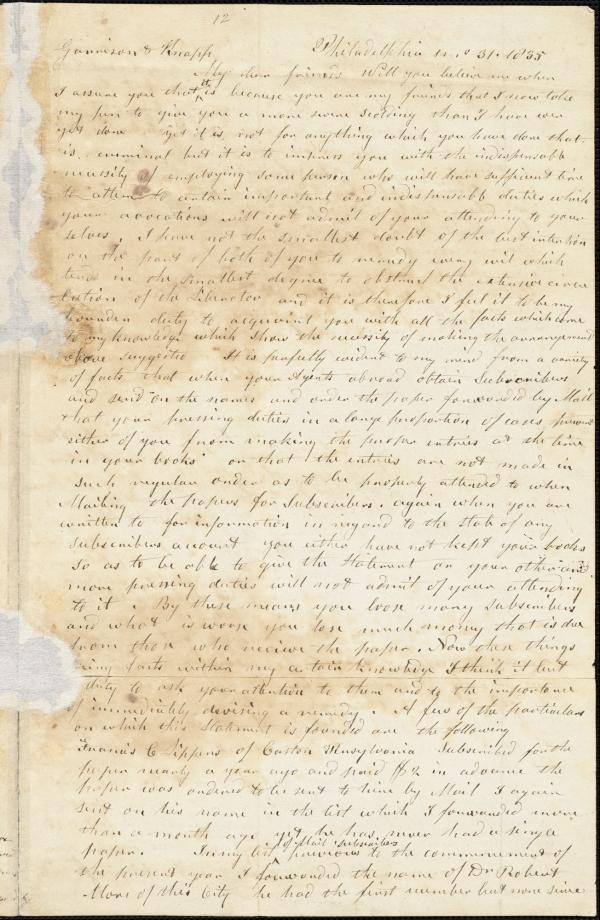 12
Garrison & Knapp Philadelphia 31. 1835
My dear friends Will you believe me when
I assure you that it is because you are my friends that I now take
my pen to give you a more severe scolding than I have ever
yet done yet it is not for anything which you have done that
is criminal but it is to impress you with the indispensable
necessity of employing some person who will have sufficient time
to attend to certain important and indispensable duties which
your avocations will not admit of your attending to your-
selves. I have not the smallest doubt of the best intention
on the part of both of you to remedy every evil which
tends in the smallest degree to obstruct the extensive circu
lation of the Liberator and it is therefore I feel it to be my
bounden duty to acquaint you with all the facts which come
to my knowledge which show the necessity of making the arrangement
above suggested It is perfectly evident to my mind from a variety
of facts that when your Agents abroad obtain Subscribers
and send on the names and order the paper forwarded by Mail
that your pressing duties in a large proportion of cases prevent
either of you from making the proper entries at the time
in your books or that the entries are not made in
such regular order as to be properly attended to when
Mailing the papers for Subscribers. again when you are
written to for information in regard to the state of any
subscribers account you either have not kept your books
so as to be able to give the statement or your other and
more pressing duties will not admit of your attending
to it. By these means you loose many subscribers
and what is worse you lose much money that is due
from those who receive the paper. Now these things
being facts within my certain knowledge I think it but
duty to ask your attention to them and to the importance
of immediately devising a remedy. A few of the particulars
on which this statement is founded are the following
Francis C Lippens of Easton Pensylvania Subscribed for the
paper nearly a year ago and paid $2 in advance the
paper was ordered to be sent to him by Mail I again
sent on his name in the list which I forwarded more
than a month ago yet he has never had a single
paper. In my list of Mail subscribers previous to the commencement of
the present year I forwarded the name of Dr Robert
More of this City he had the first number but none since